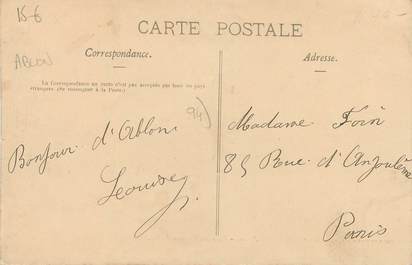 15-6
CARTE POSTALE
Correspondance.
Adresse.
ABLON
La Correspondance au recto n'est pas acceptée par tous les pays
étrangers. (Se renseigner à la Poste)
94)
Bonjour d'Ablon
Madame Foin
85 Rue d'Angoulême
Paris